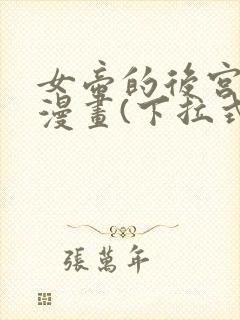 女帝的後宮
漫畫(下拉式
張萬年